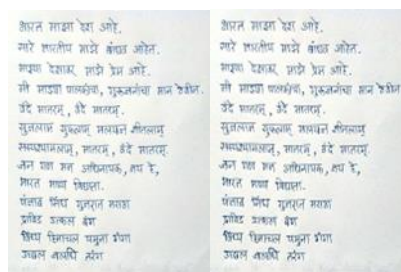 भारत माझा देश आहे.
सारे भारतीय माझे बांधव आहेत.
माझ्या देशावर माझे प्रेम आहे.
मी माझ्या पालकांचा, गुरुजनांचा मान ठेवीन.
वंदे मातरम्, वंदे मातरम्.
सुजलाम् सुफलाम् मलयज शीतलाम्
सस्यश्यामलाम्, मातरम्, वंदे मातरम्.
जन गण मन अधिनायक, जय हे,
भारत भाग्य विधाता.
पंजाब सिंध गुजरात मराठा
द्राविड उत्कल बंग
विंध्य हिमाचल यमुना गंगा
उच्छल जलधि तरंग
भारत माझा देश आहे.
सारे भारतीय माझे बांधव आहेत.
माझ्या देशावर माझे प्रेम आहे.
मी माझ्या पालकांचा, गुरुजनांचा मान ठेवीन.
वंदे मातरम्, वंदे मातरम्.
सुजलाम् सुफलाम् मलयज शीतलाम्
सस्यश्यामलाम्, मातरम्, वंदे मातरम्.
जन गण मन अधिनायक, जय हे,
भारत भाग्य विधाता.
पंजाब सिंध गुजरात मराठा
द्राविड उत्कल बंग
विंध्य हिमाचल यमुना गंगा
उच्छल जलधि तरंग